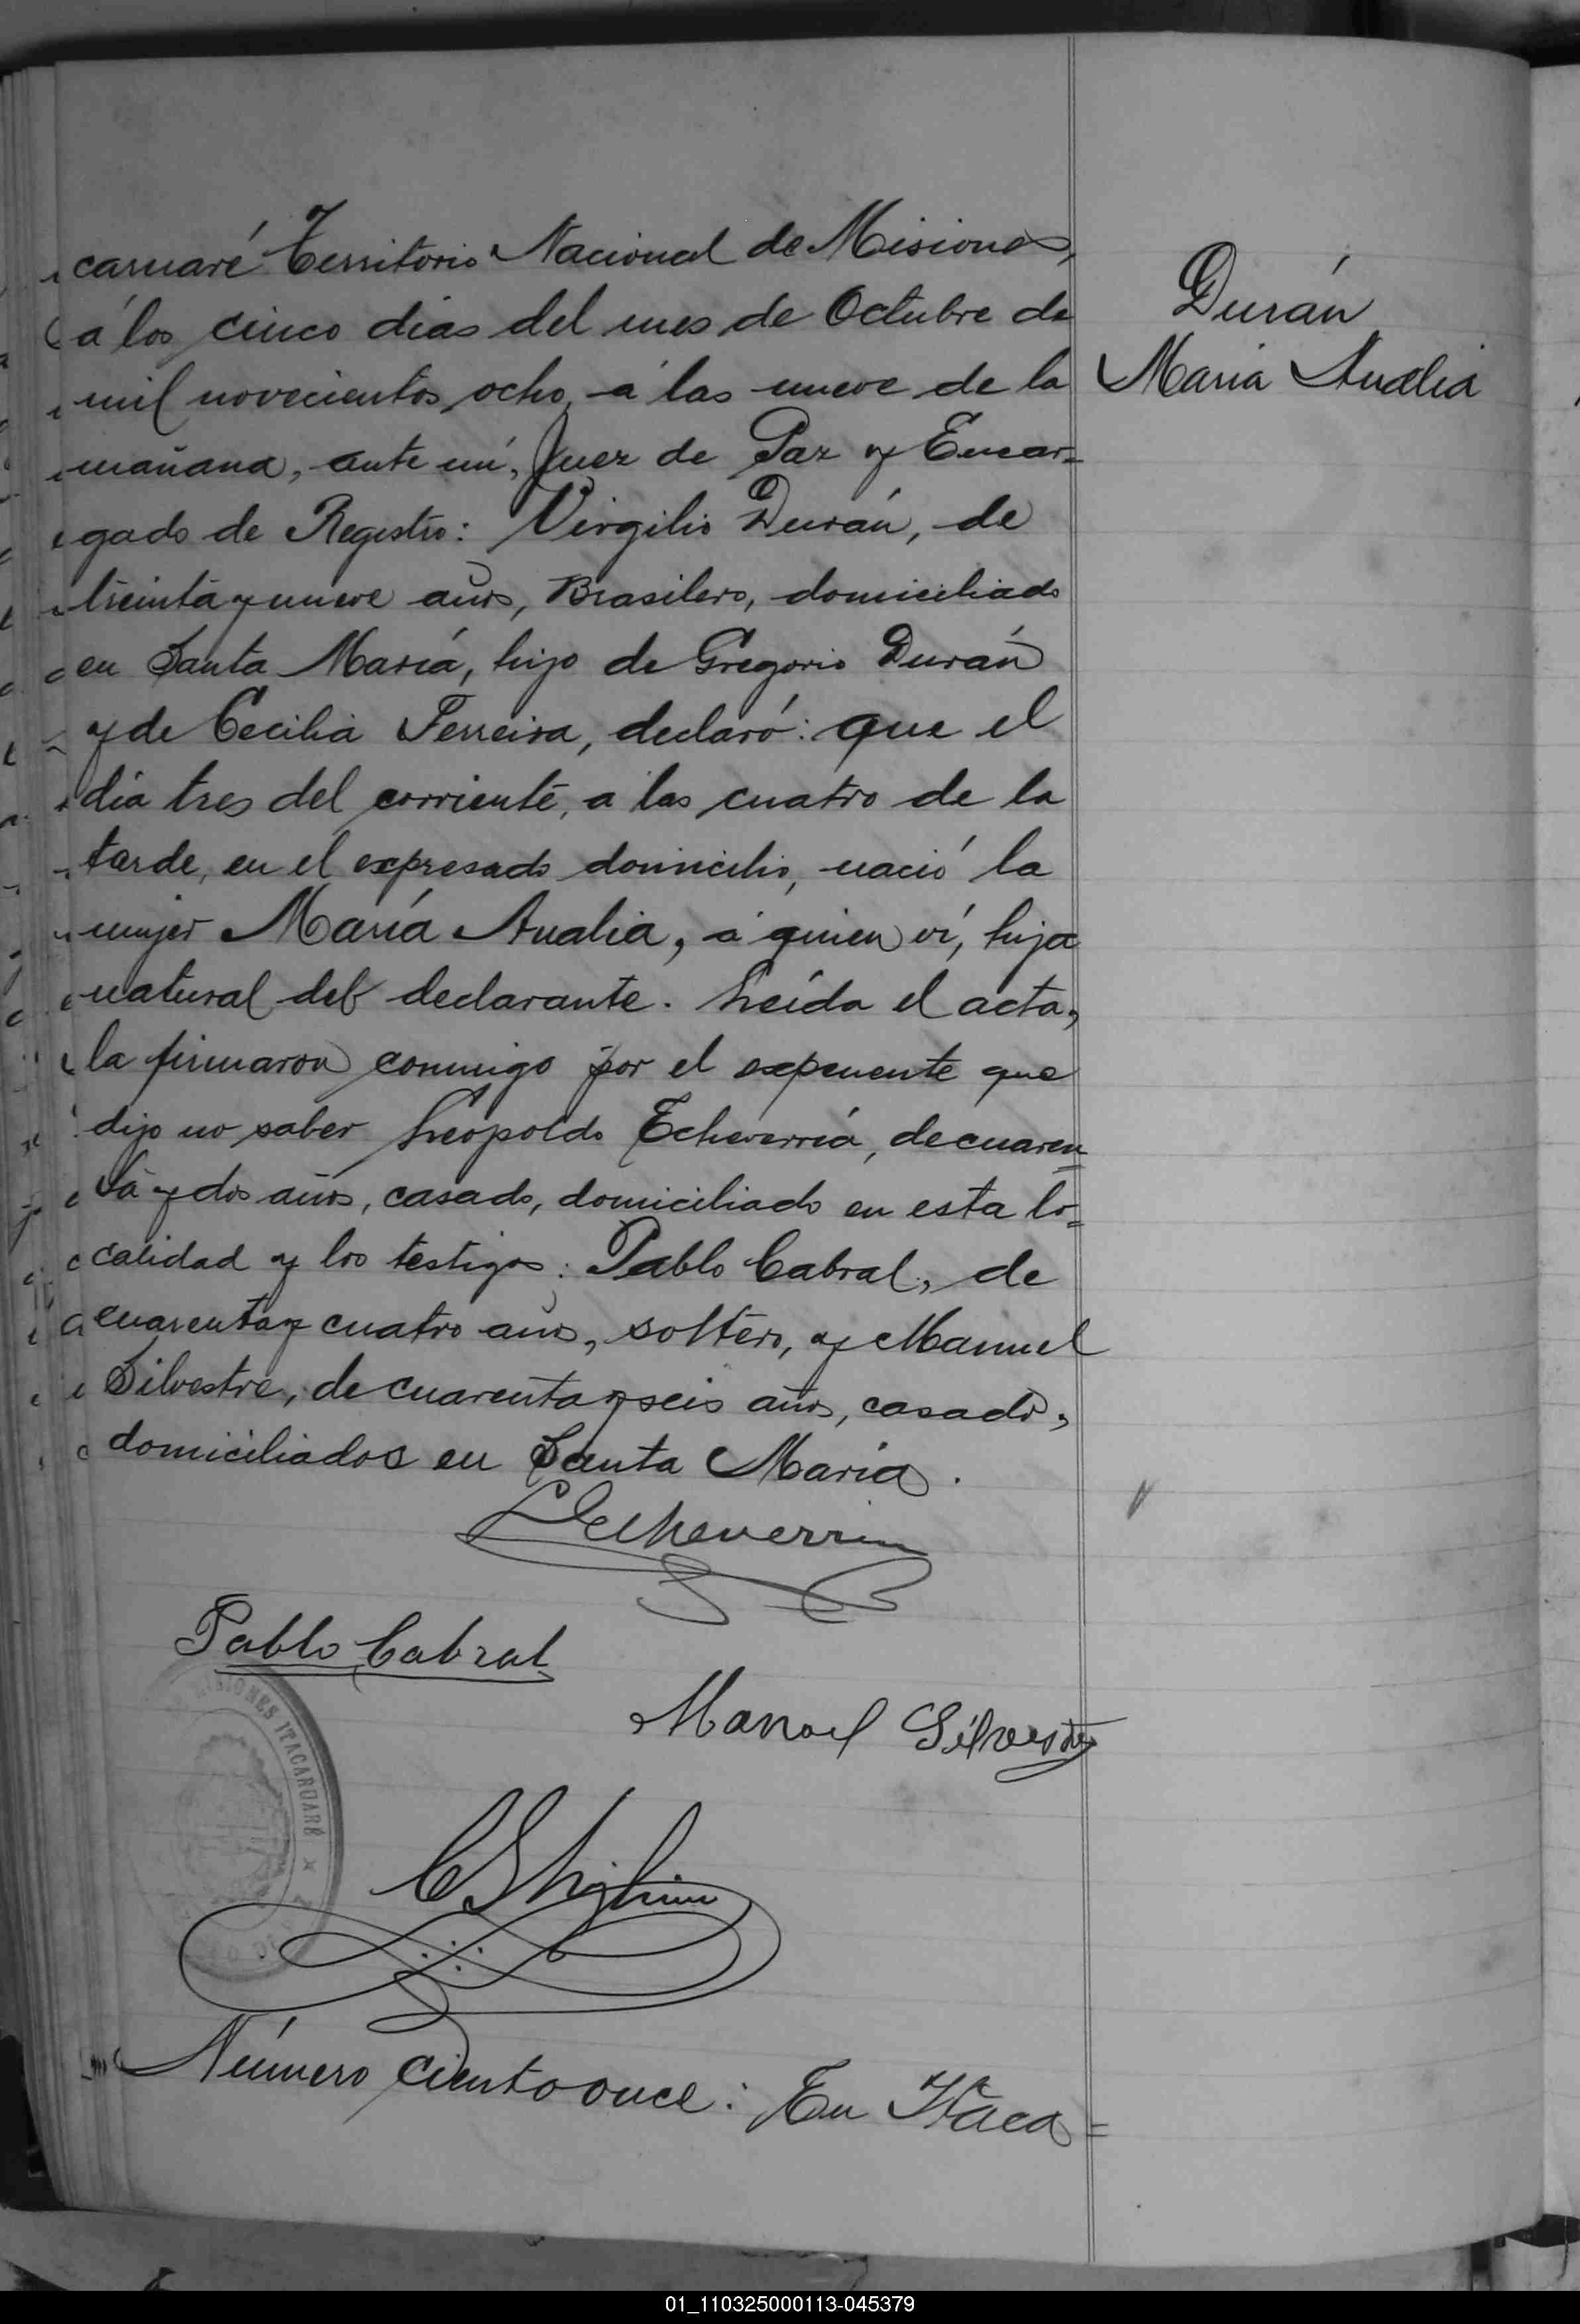 caruaré Territorio Nacional de Misiones,
á los cinco dias del mes de Octubre de
mil novecientos ocho, á las nueve de la
mañana, ante mí, Juez de Paz y Encar=
gado de Registro: Virgilio Durán, de
treinta y nueve años, Brasilero, domiciliado
en Santa María, hijo de Gregorio Durán
y de Cecilia Ferreira, declaró: que el
día tres del corriente, a las cuatro de la
tarde, en el expresado domicilio, nació la
mujer María Analia, á quien ví, hija
natural del declarante. Leída el acta,
la firmaron conmigo por el exponente que
dijo no saber Leopoldo Echeverría, de cuaren=
ta y dos años, casado, domiciliado en esta lo=
calidad y los testigos: Pablo Cabral, de
cuarenta y cuatro años, soltero, y Manuel
Silvestre, de cuarenta y seis años, casado,
domiciliados en Santa María.
Durán
Maria Analia
LEcheverria
Pablo Cabral
Manoel Silvestre
MISIONES ITACARUARÉ
Número ciento once: En Itaca=
01_110325000113-045379